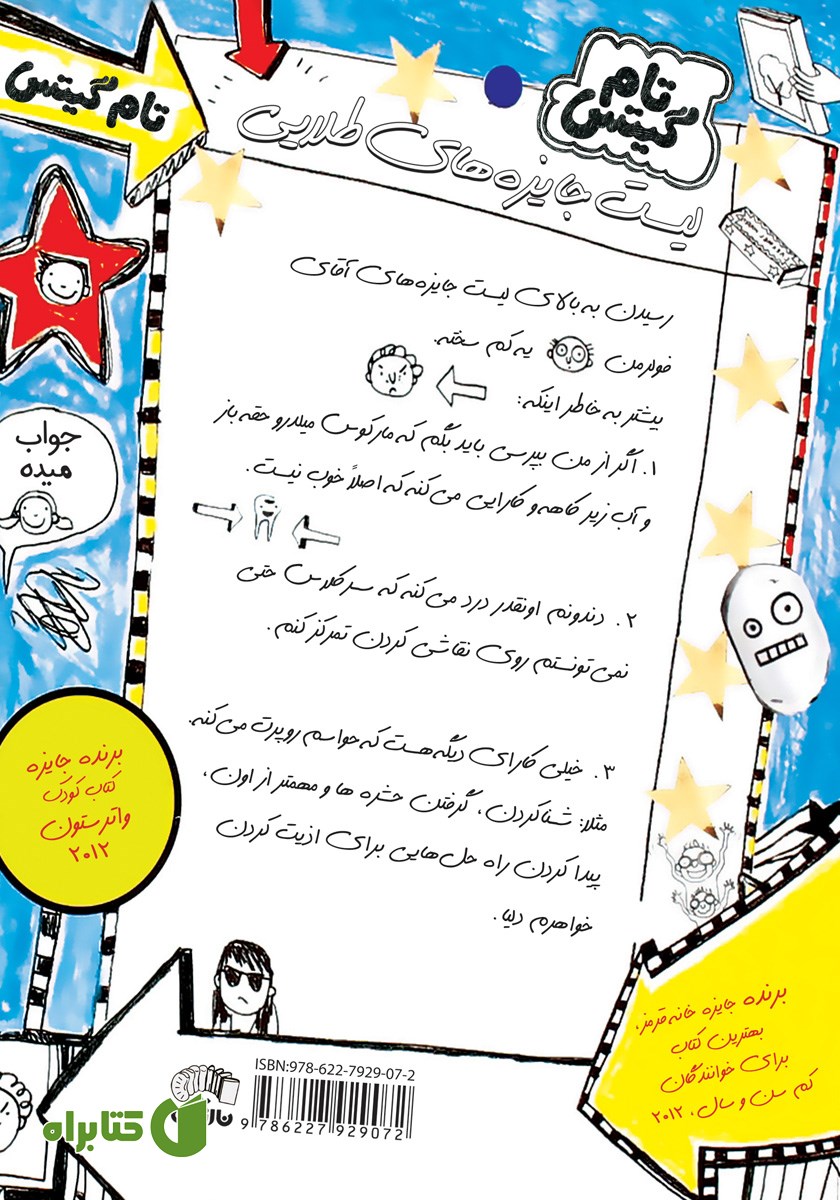 تام گیتس
تام
گیتس
لیست جایزه‌های طلایی
رسیدن به بالای لیست جایزه‌های آقای
فولرمن یه کم سخته.
بیشتر به خاطر اینکه:
۱. اگر از من بپرسی باید بگم که مارکوس میلدرو حقه‌باز
و آب زیر کاهه و کارایی می‌کنه که اصلاً خوب نیست.
۲. دندونم اونقدر درد می‌کنه که سر کلاس حتی
نمی‌تونستم روی نقاشی کردن تمرکز کنم.
۳. خیلی کارای دیگه هست که حواسم رو پرت می‌کنه.
مثلا: شنا کردن، گرفتن حشره ها و مهمتر از اون،
پیدا کردن راه حل‌هایی برای اذیت کردن
خواهرم دلیا.
جواب
میده
برنده جایزه
کتاب کودک
واترستون
۲۰۱۲
برنده جایزه خانه قرمز،
بهترین کتاب
برای خوانندگان
کم سن و سال، ۲۰۱۲
ISBN:978-622-7929-07-2
9 786227 929072
کتابراه